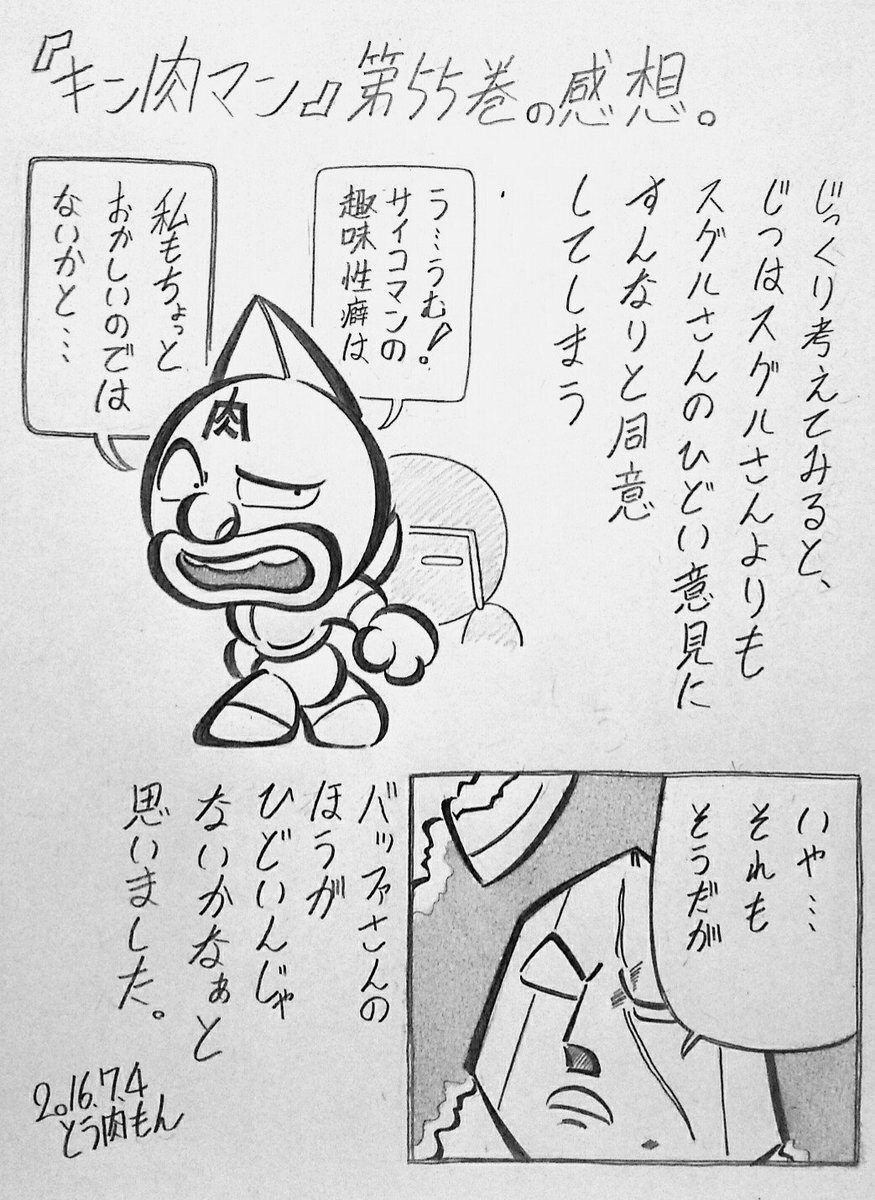 『キン肉マン』第55巻の感想。
じっくり考えてみると、
じつはスグルさんよりも
スグルさんのひどい意見に
すんなりと同意
してしまう
う…うむ!
サイコマンの
趣味性癖は
私もちょっと
おかしいのでは
ないかと…
肉
いや…
それも
そうだが
バッファさんの
ほうが
ひどいんじゃ
ないかなぁと
思いました。
2016.7.4
とう肉もん